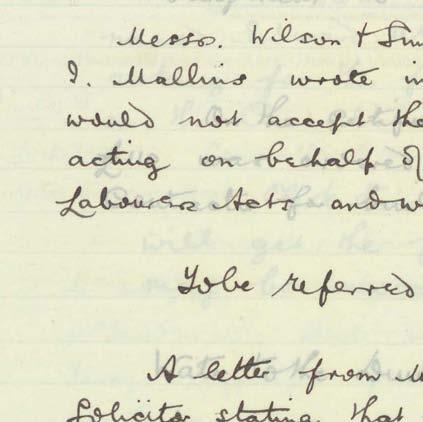 Messrs. Wilson & Sim
J. Mallins wrote in
would not accept the
acting on behalf of
Labourers Acts and w
To be referred
A letter from M
Solicitor stating that